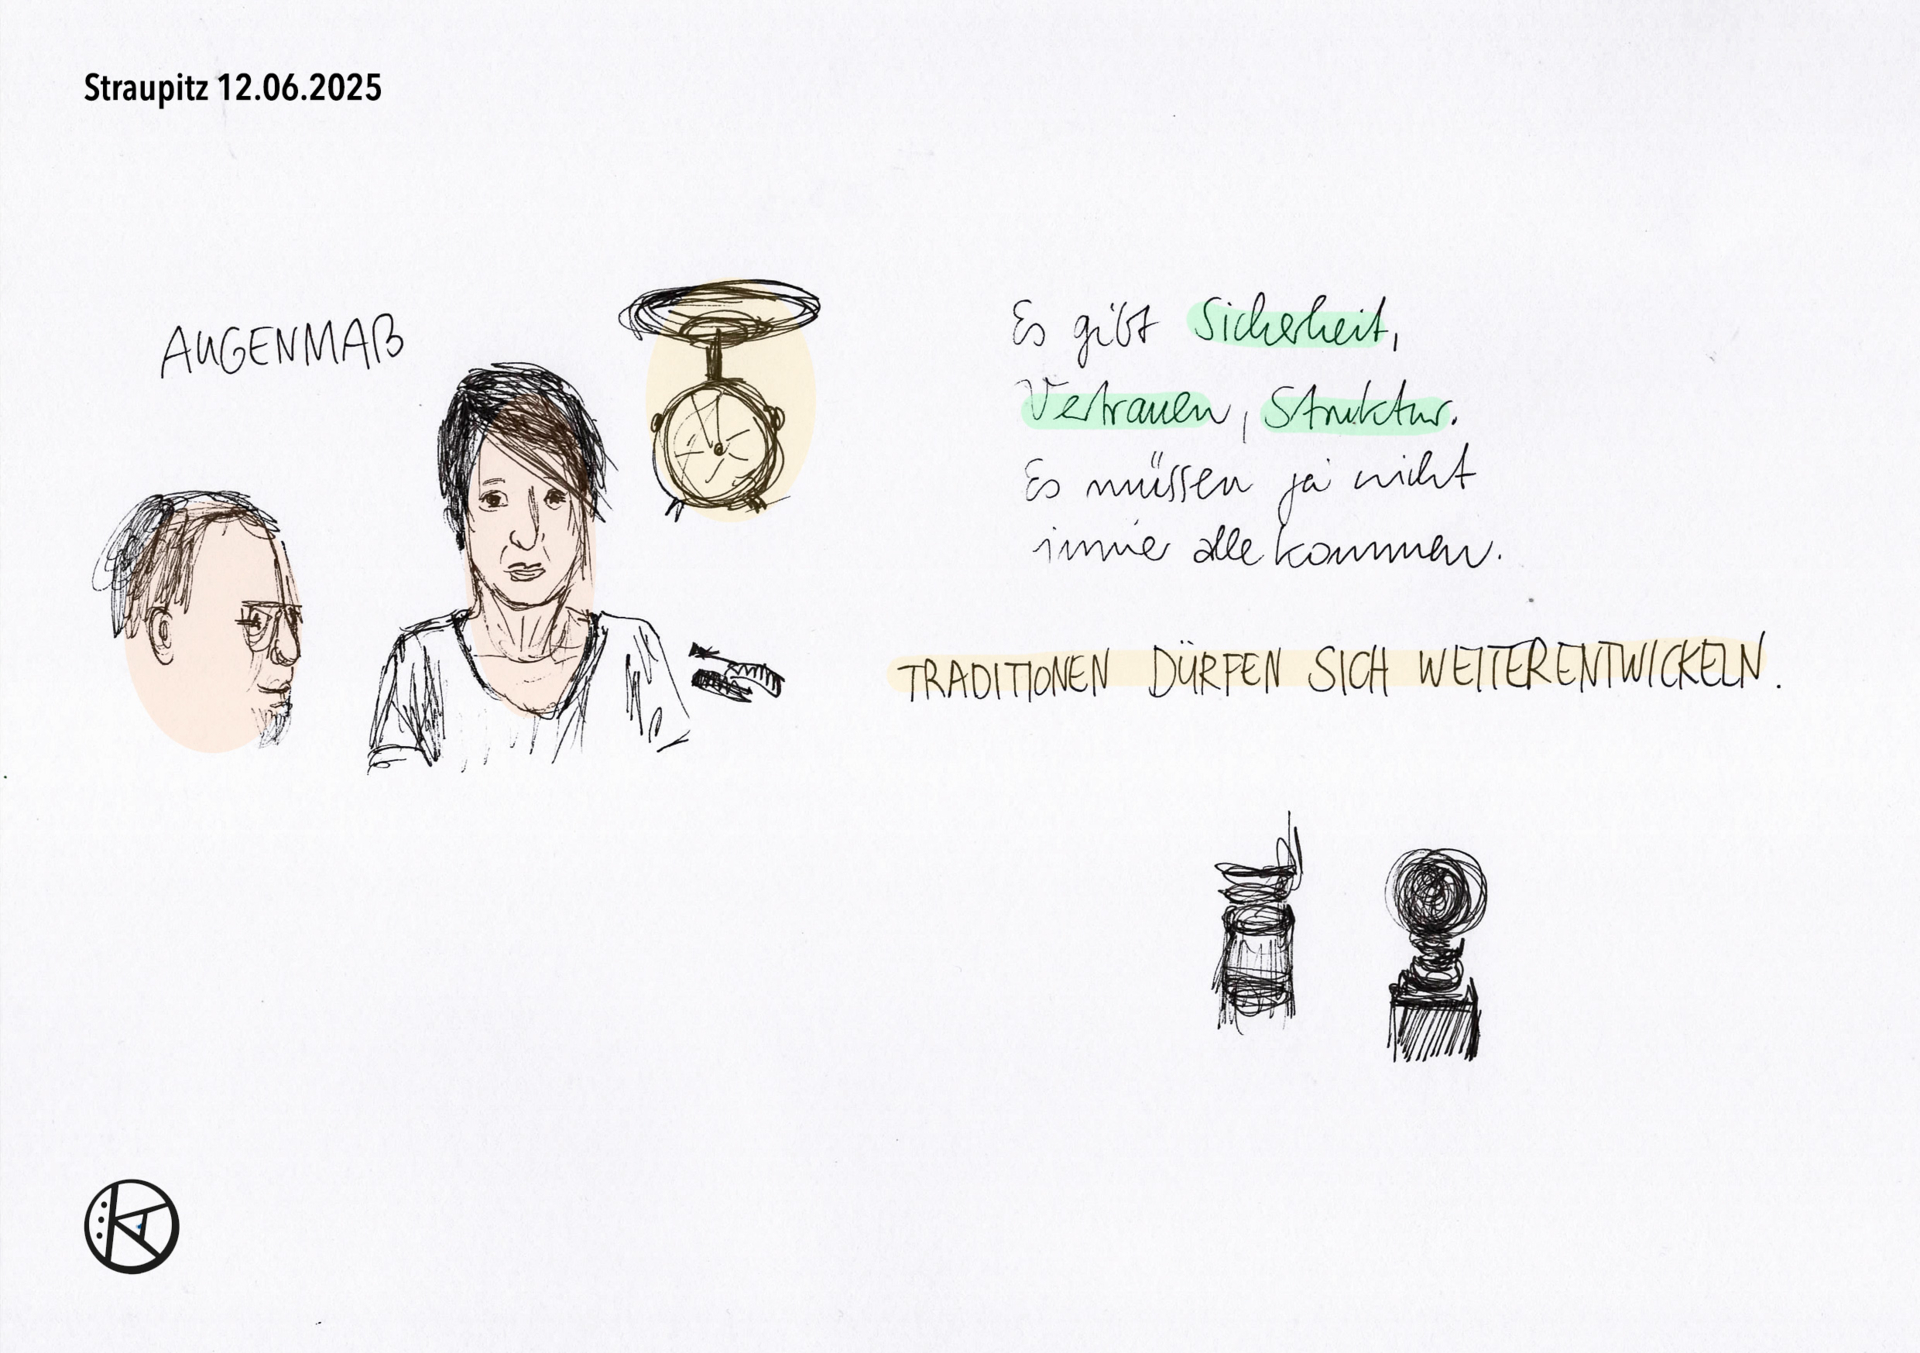 Straupitz 12.06.2025
AUGENMAß
Es gibt Sicherheit,
Vertrauen, Struktur.
Es müssen ja nicht
immer alle kommen.
TRADITIONEN DÜRFEN SICH WEITERENTWICKELN.